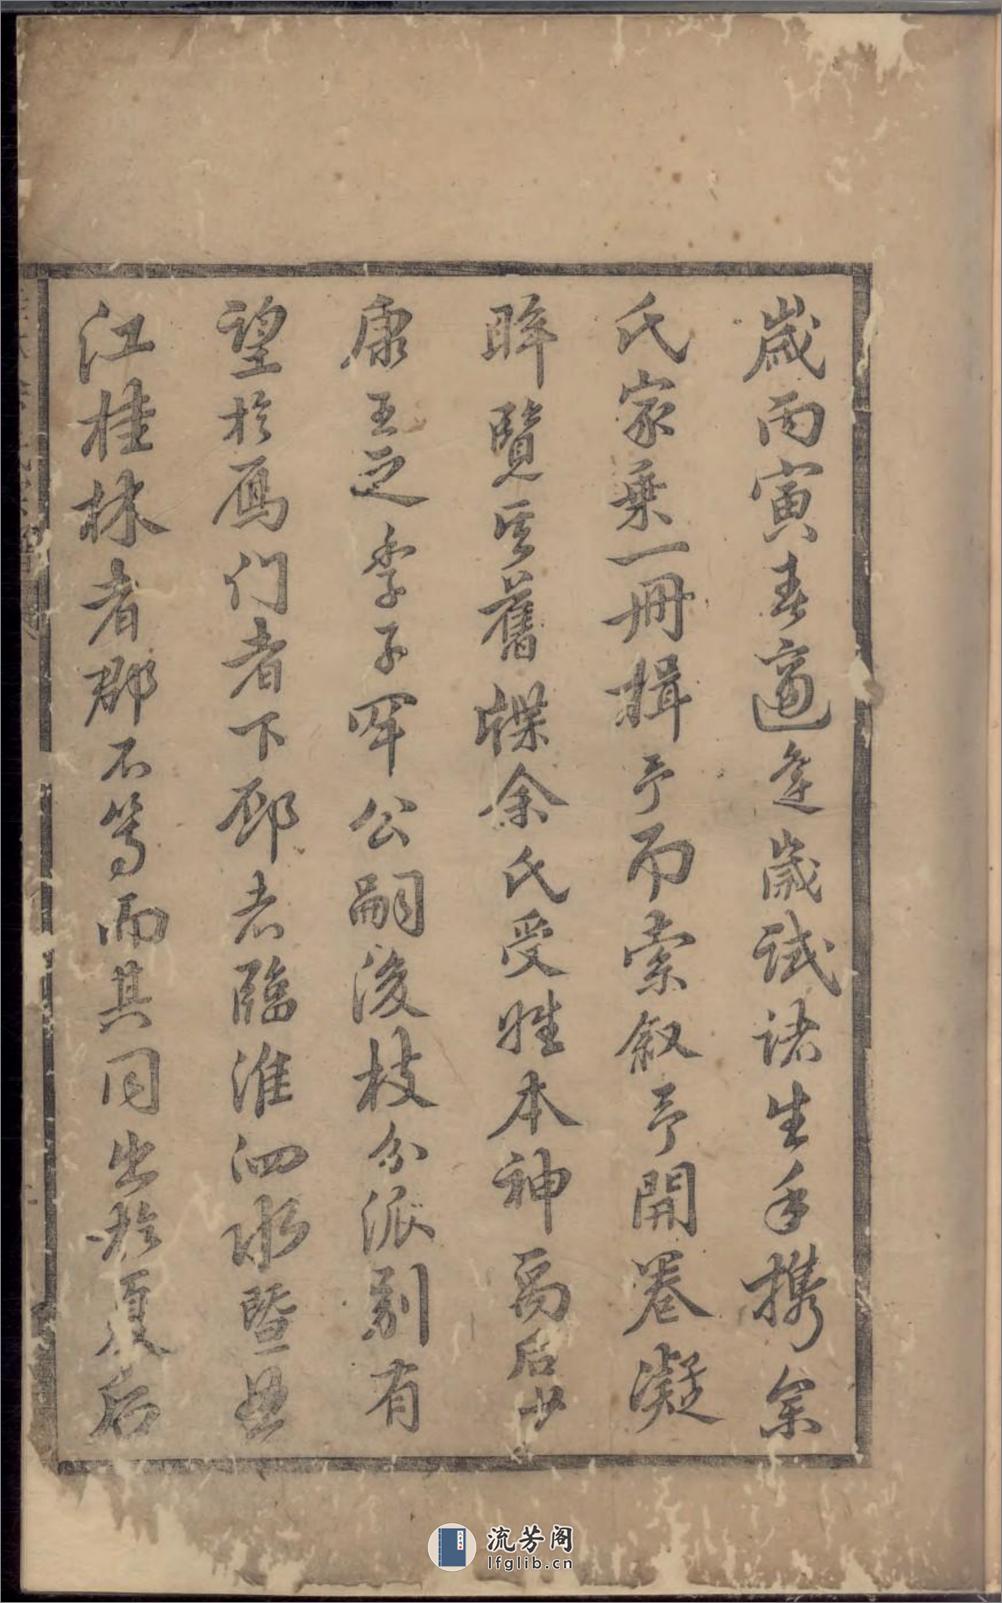 歲丙寅春適逢歲試諸生手携余
氏家乗一冊揖予而索叙予開卷凝
眸覽其舊牒余氏受姓本神禹后少
康王之季子罕公嗣後枝分派别有
望於鴈门者下邳者臨淮泗水暨
江桂林者郡不等而其同出於夏后
流芳阁
lfglib.cn